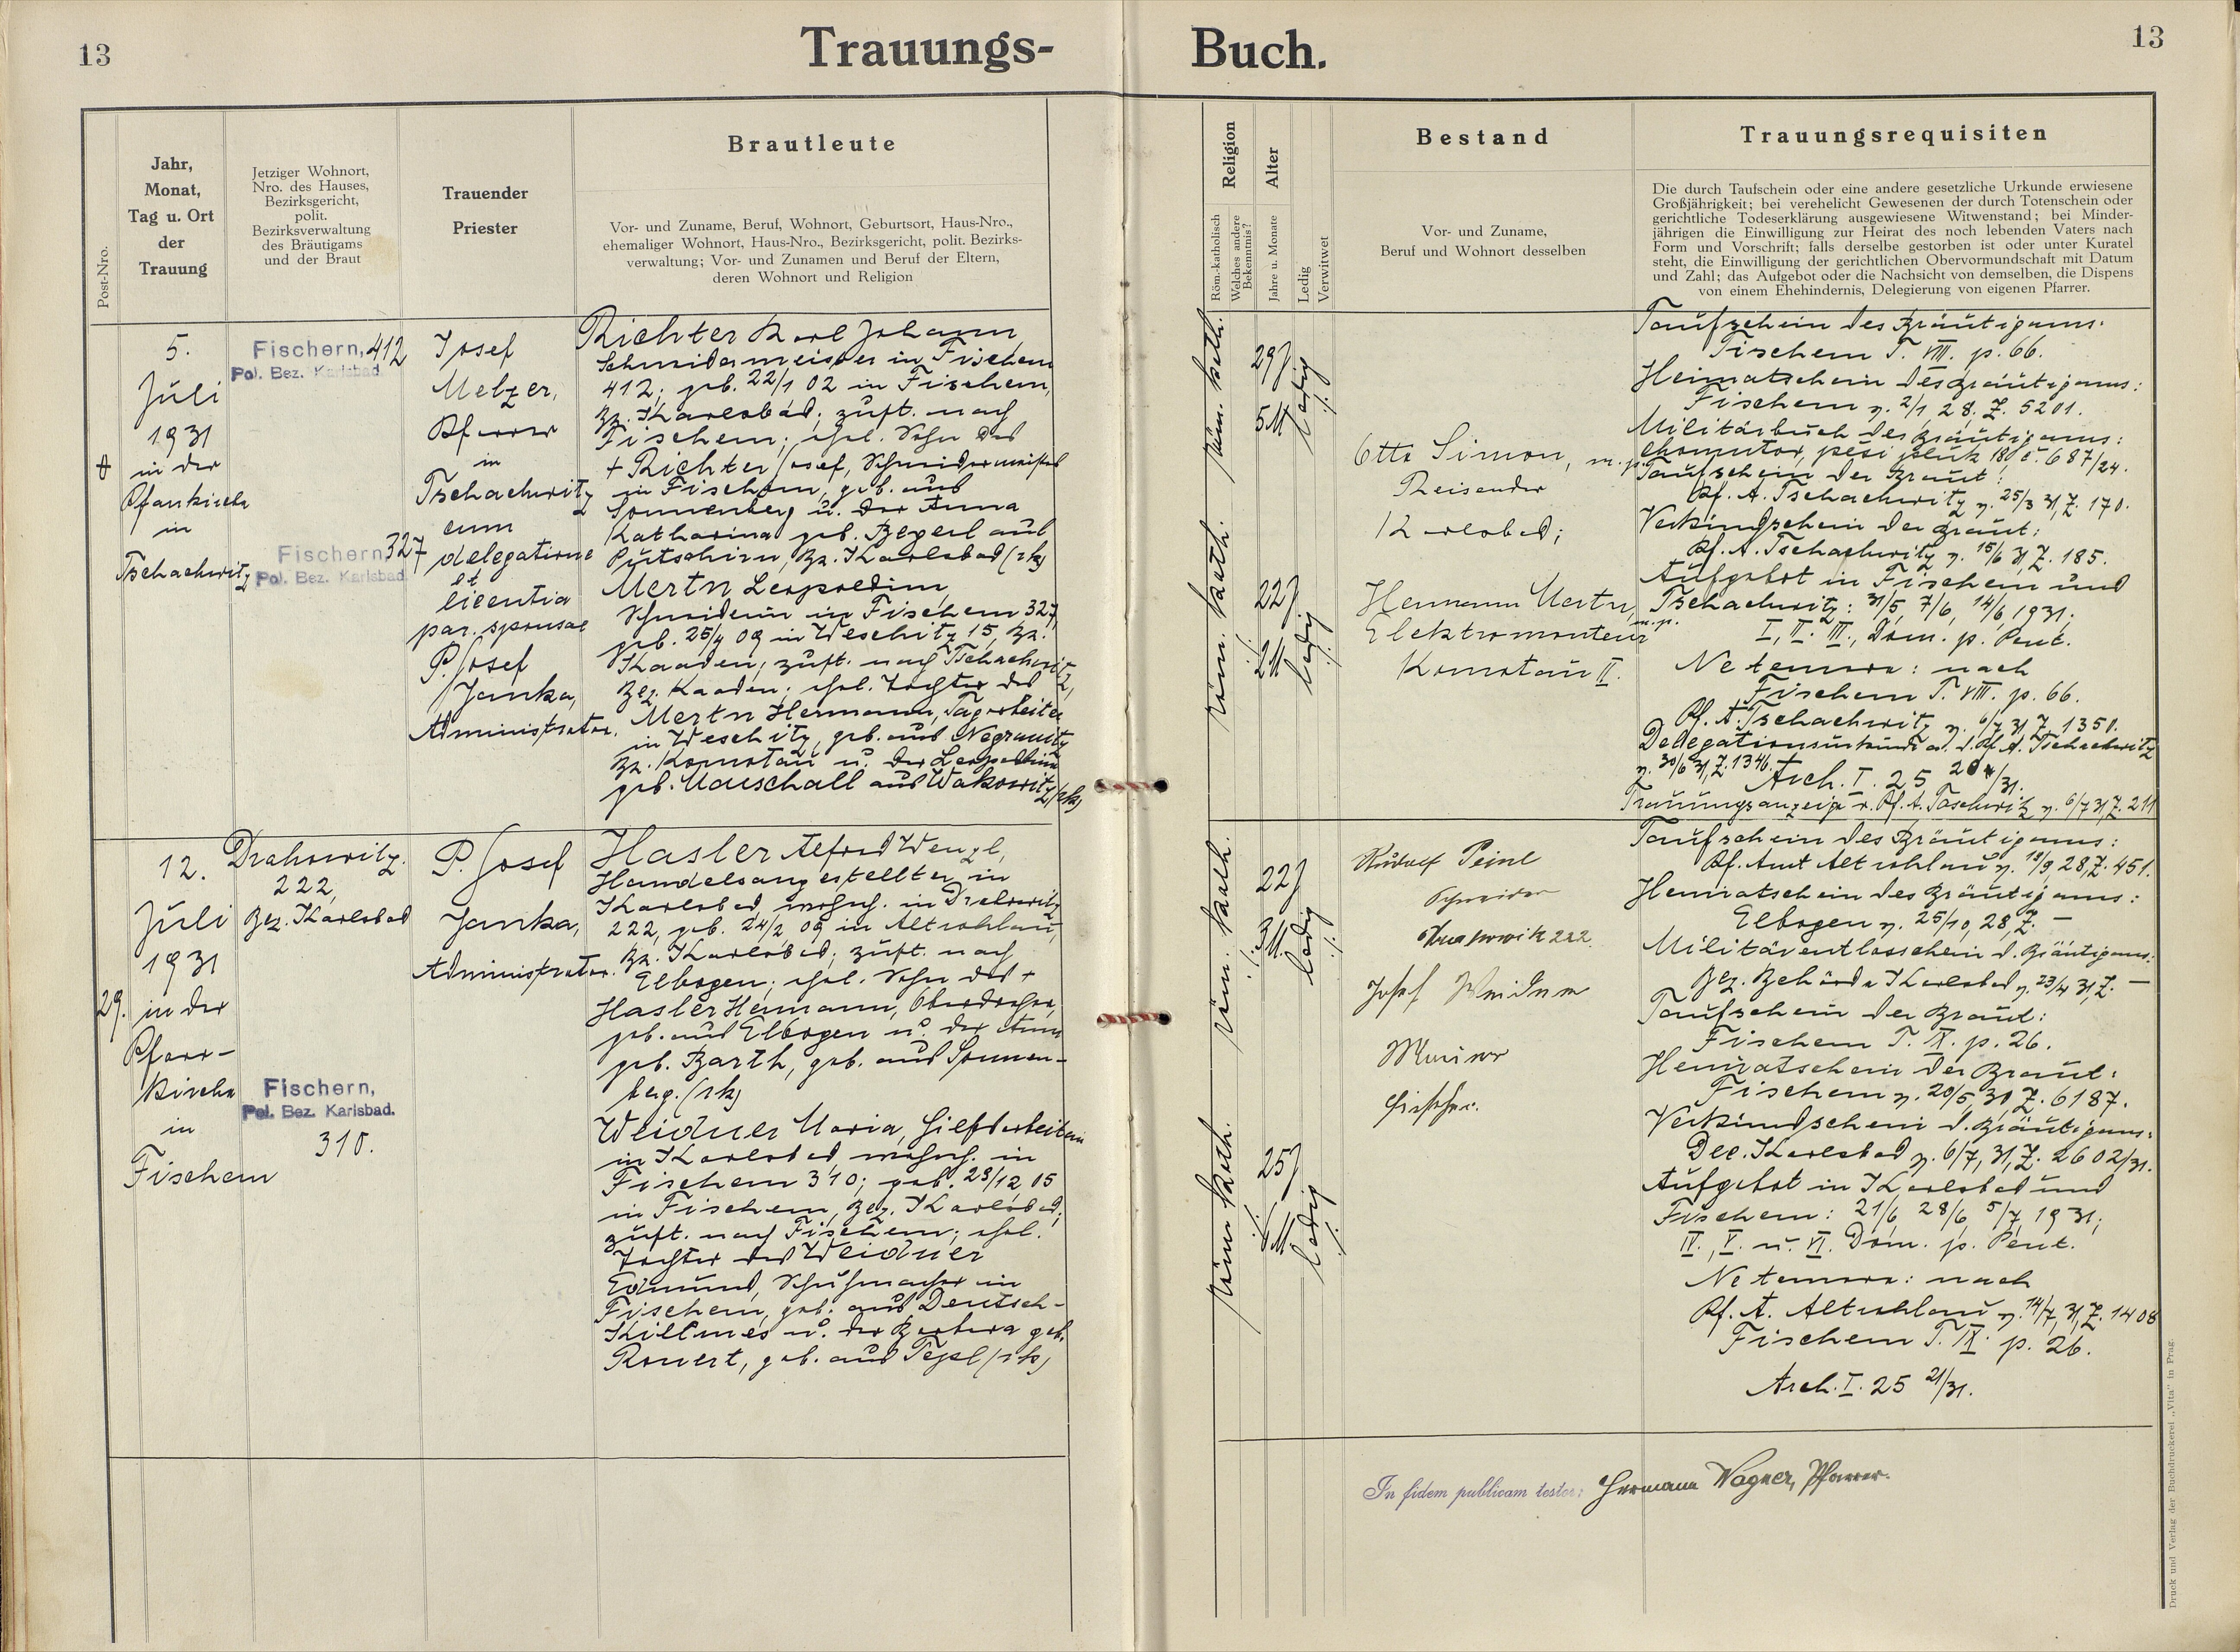 13
Trauungs-
Buch.
13
Post-Nro.
Jahr,
Monat,
Tag u. Ort
der
Trauung
Jetziger Wohnort,
Nro. des Hauses,
Bezirksgericht,
polit.
Bezirksverwaltung
des Bräutigams
und der Braut
Trauender
Priester
Brautleute
Vor- und Zuname, Beruf, Wohnort, Geburtsort, Haus-Nro.,
ehemaliger Wohnort, Haus-Nro., Bezirksgericht, polit. Bezirks-
verwaltung; Vor- und Zunamen und Beruf der Eltern,
deren Wohnort und Religion
Religion
Röm.-katholisch
Welches andere
Bekenntnis?
Alter
Jahre u. Monate
Ledig
Verwitwet
Bestand
Vor- und Zuname,
Beruf und Wohnort desselben
Trauungsrequisiten
Die durch Taufschein oder eine andere gesetzliche Urkunde erwiesene
Großjährigkeit; bei verehelicht Gewesenen der durch Totenschein oder
gerichtliche Todeserklärung ausgewiesene Witwenstand; bei Minder-
jährigen die Einwilligung zur Heirat des noch lebenden Vaters nach
Form und Vorschrift; falls derselbe gestorben ist oder unter Kuratel
steht, die Einwilligung der gerichtlichen Obervormundschaft mit Datum
und Zahl; das Aufgebot oder die Nachsicht von demselben, die Dispens
von einem Ehehindernis, Delegierung von eigenen Pfarrer.
5.
Juli
1931
in der
Pfarrkirche
in
Tschachwitz
Fischern, 412
Pol. Bez. Karlsbad.
Fischern 327
Pol. Bez. Karlsbad.
Josef
Melzer,
Pfarrer
in
Tschachwitz
cum
delegatione
et
licentia
par. sponsae
P. Josef
Janka,
Administrator.
Richter Karl Johann,
Schneidermeister in Fischern
412; geb. 22/1 02 in Fischern,
Bz. Karlsbad; zust. nach
Fischern; ehel. Sohn des
+ Richter Josef, Schneidermeister
in Fischern, geb. aus
Sonnenberg u. der Anna
Katharina geb. Begerl aus
Putschirn, Bz. Karlsbad (rk)
Mertn Leopoldine,
Schneiderin in Fischern 327,
geb. 25/4 09 in Weschitz 15, Bz.
Kaaden; zust. nach Tschachwitz,
Bez. Kaaden; ehel. Tochter des
Mertn Hermann, Tagarbeiter
in Weschitz, geb. aus Negranitz
Bz. Komotau u. der Leopoldine
geb. Maschall aus Wakowitz (rk)
röm. kath.
29J
5M
ledig
röm. kath.
22J
2M
ledig
Otto Simon, m.p.
Reisender
Karlsbad;
Hermann Mertn, m.p.
Elektromonteur
Komotau II.
Taufschein des Bräutigams:
Fischern T. VIII. p. 66.
Heimatschein des Bräutigams:
Fischern v. 2/1 28, Z. 5201.
Militärbuch des Bräutigams:
Chomutov, pěší pluk 18, č. 687/24.
Taufschein der Braut:
Pf. A. Tschachwitz v. 25/3 31, Z. 170.
Verkündschein der Braut:
Pf. A. Tschachwitz v. 15/6 31, Z. 185.
Aufgebot in Fischern und
Tschachwitz: 31/5, 7/6, 14/6, 1931;
I., II., III., Dom. p. Pent.
Ne temere: nach
Fischern T. VIII. p. 66.
Pf. A. Tschachwitz v. 6/7 31, Z. 1350.
Delegationsurkunde a. d. Pf. A. Tschachwitz
v. 30/6 31, Z. 1346.
Arch. I. 25 20/31.
Trauungsanzeige v. Pf. A. Taschwitz v. 6/7 31, Z. 211
29.
12.
Juli
1931
in der
Pfarr-
kirche
in
Fischern
Drahowitz
222,
Bez. Karlsbad
Fischern,
Pol. Bez. Karlsbad.
310.
P. Josef
Janka,
Administrator.
Hasler Alfred Wenzl,
Handelsangestellter in
Karlsbad, wohnh. in Drahowitz
222, geb. 24/2 09 in Altrohlau,
Bz. Karlsbad; zust. nach
Elbogen; ehel. Sohn des +
Hasler Hermann, Oberdreher,
geb. aus Elbogen u. der Anna
geb. Barth, geb. aus Sonnen-
berg. (rk)
Weidner Maria, Hilfsarbeiterin
in Karlsbad, wohnh. in
Fischern 310; geb. 23/12 05
in Fischern, Bez. Karlsbad;
zust. nach Fischern; ehel.
Tochter des Weidner
Edmund, Schuhmacher in
Fischern, geb. aus Deutsch-
Killmes u. der Barbara geb.
Ronert, geb. aus Tepl (rk)
röm. kath.
22J
ledig
röm. kath.
25J
6M
ledig
Rudolf Peinl
Schneider
Drahowitz 222.
Josef Weidner
Maurer
Fischern.
Taufschein des Bräutigams:
Pf. Amt Altrohlau v. 18/9, 28, Z. 451.
Heimatschein des Bräutigams:
Elbogen v. 25/10, 28, Z. —
Militärentlasschein d. Bräutigams:
Bez. Behörde Karlsbad v. 23/4 31, Z. —
Taufschein der Braut:
Fischern T. IX. p. 26.
Heimatschein der Braut:
Fischern v. 20/5, 30, Z. 6187.
Verkündschein d. Bräutigams:
Dec. Karlsbad v. 6/7, 31, Z. 2602/31.
Aufgebot in Karlsbad und
Fischern: 21/6, 28/6, 5/7, 1931;
IV., V. u. VI. Dom. p. Pent.
Ne temere: nach
Pf. A. Altrohlau v. 14/7, 31, Z. 1408
Fischern T. IX. p. 26.
Arch. I. 25 21/31.
In fidem publicam testor: Hermann Wagner, Pfarrer.
Druck und Verlag der Buchdruckerei „Vita" in Prag.